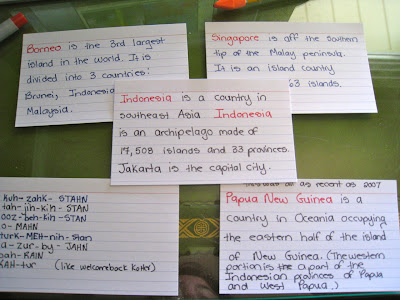 Borneo is the 3rd largest
island in the world. It is
divided into 3 countries:
Brunei, Indonesia
Malaysia.
Singapore is off the southern
tip of the Malay peninsula.
It is an island country
63 islands.
Indonesia is a country in
southeast Asia. Indonesia
is an archipelago made of
17,508 islands and 33 provinces.
Jakarta is the capital city.
kuh-zahk-STAHN
tah-jih-kih-STAN
ooz-beh-kih-STAN
o-MAHN
turk-MEH-nih-stan
a-zur-by-JAHN
bah-RAIN
KAH-tur (like welcomeback Kotter)
This was all as recent as 2007
Papua New Guinea is a
country in Oceania occupying
the eastern half of the island
of New Guinea. (The western
portion is the a part of the
Indonesian provinces of Papua
and West Papua.)